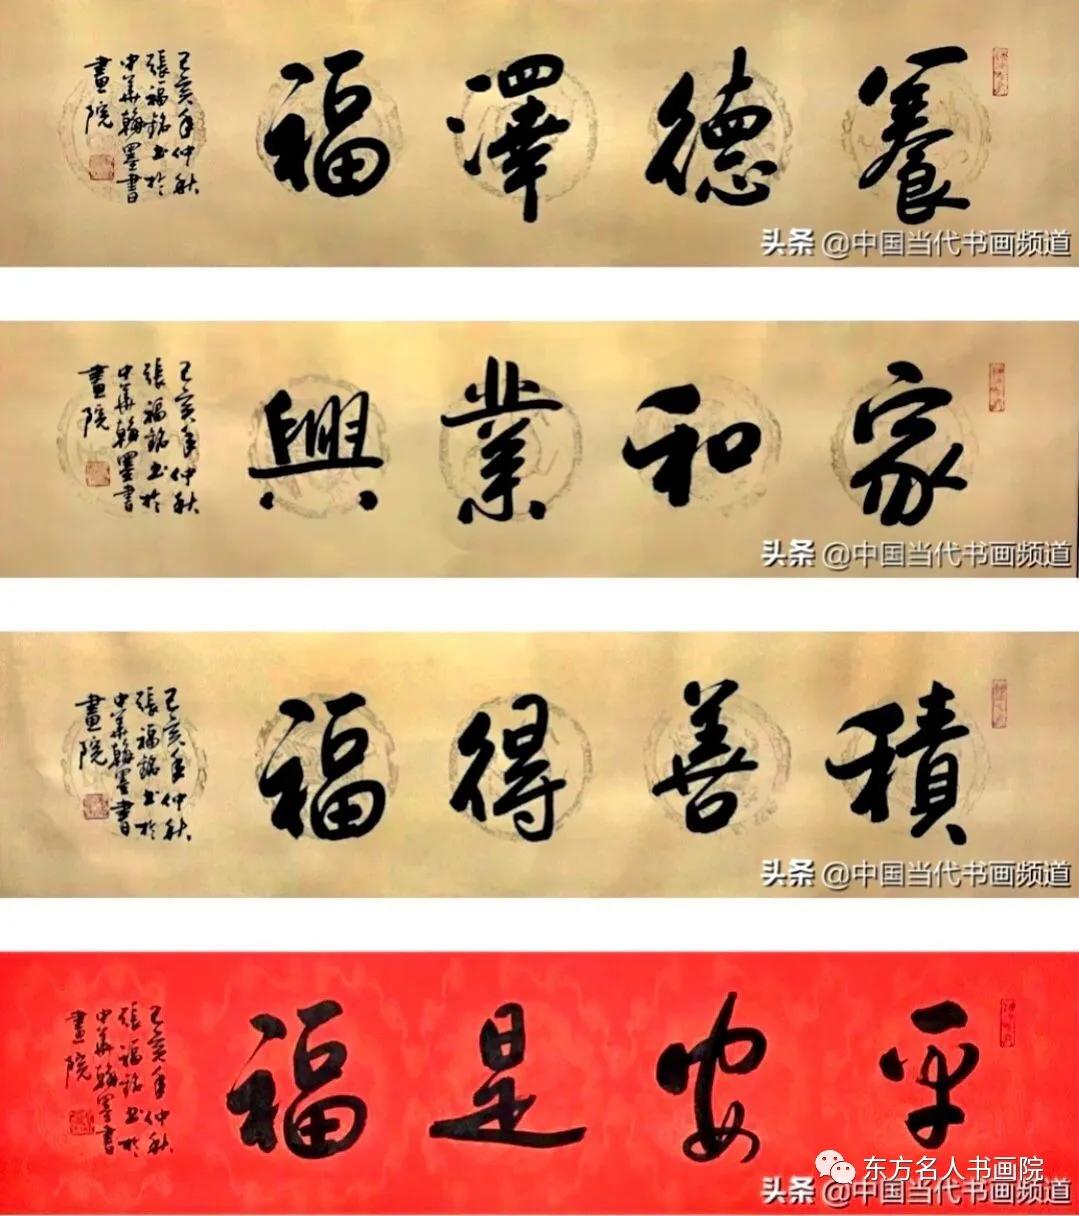 養德澤福
己亥年仲秋
張福銘书於
中華翰墨書
畫院
头条 @中国当代书画频道
家和業興
己亥年仲秋
張福銘书於
中華翰墨書
畫院
头条 @中国当代书画频道
積善得福
己亥年仲秋
張福銘书於
中華翰墨書
畫院
头条 @中国当代书画频道
平安是福
己亥年仲秋
張福銘书於
中華翰墨書
畫院
东方名人书画院
头条 @中国当代书画频道